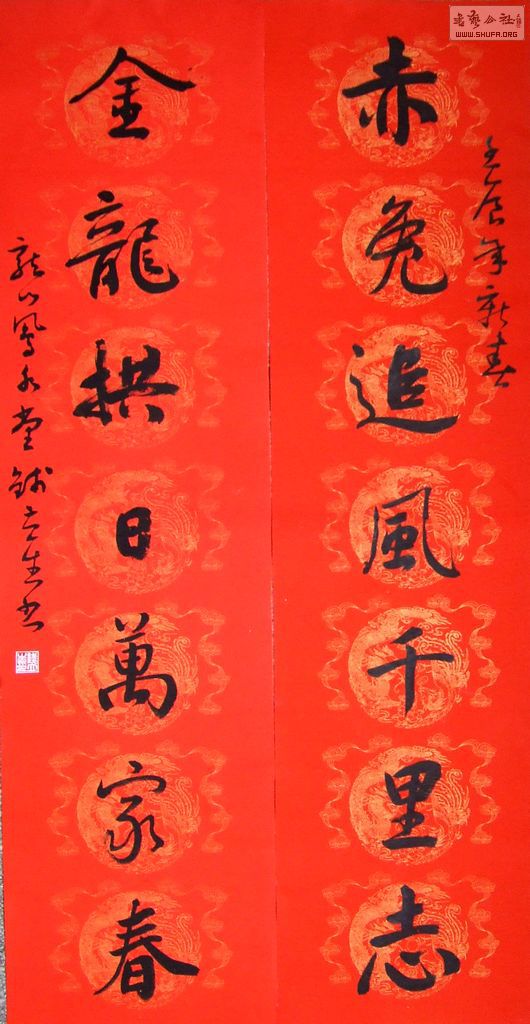 書藝公社
WWW.SHUFA.ORG
壬辰年新春
赤兔追風千里志
金龍拱日萬家春
龍山鳳水堂